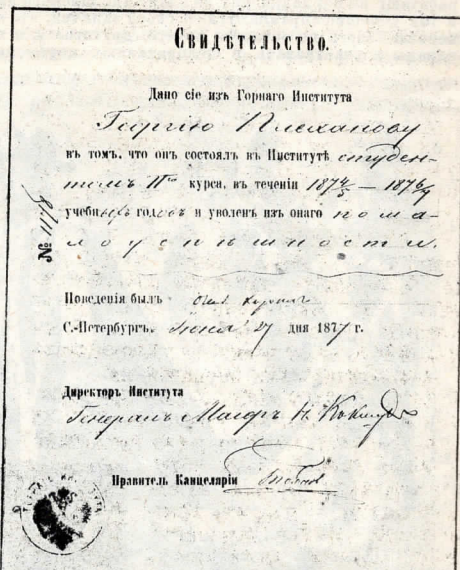 Свидѣтельство.
Дано сіе изъ Горнаго Института
Георгію Плеханову
въ томъ, что онъ состоялъ въ Институтѣ студен-
томъ IIго курса, въ теченіи 1874/5 — 1876/7
учебныхъ годовъ и уволенъ изъ онаго по ма-
лоуспѣшности.
№
Поведенія былъ
С.-Петербургъ. Іюня 27 дня 1877 г.
Директоръ Института
Генералъ Маіоръ Н. Кокшаровъ
Правитель Канцеляріи